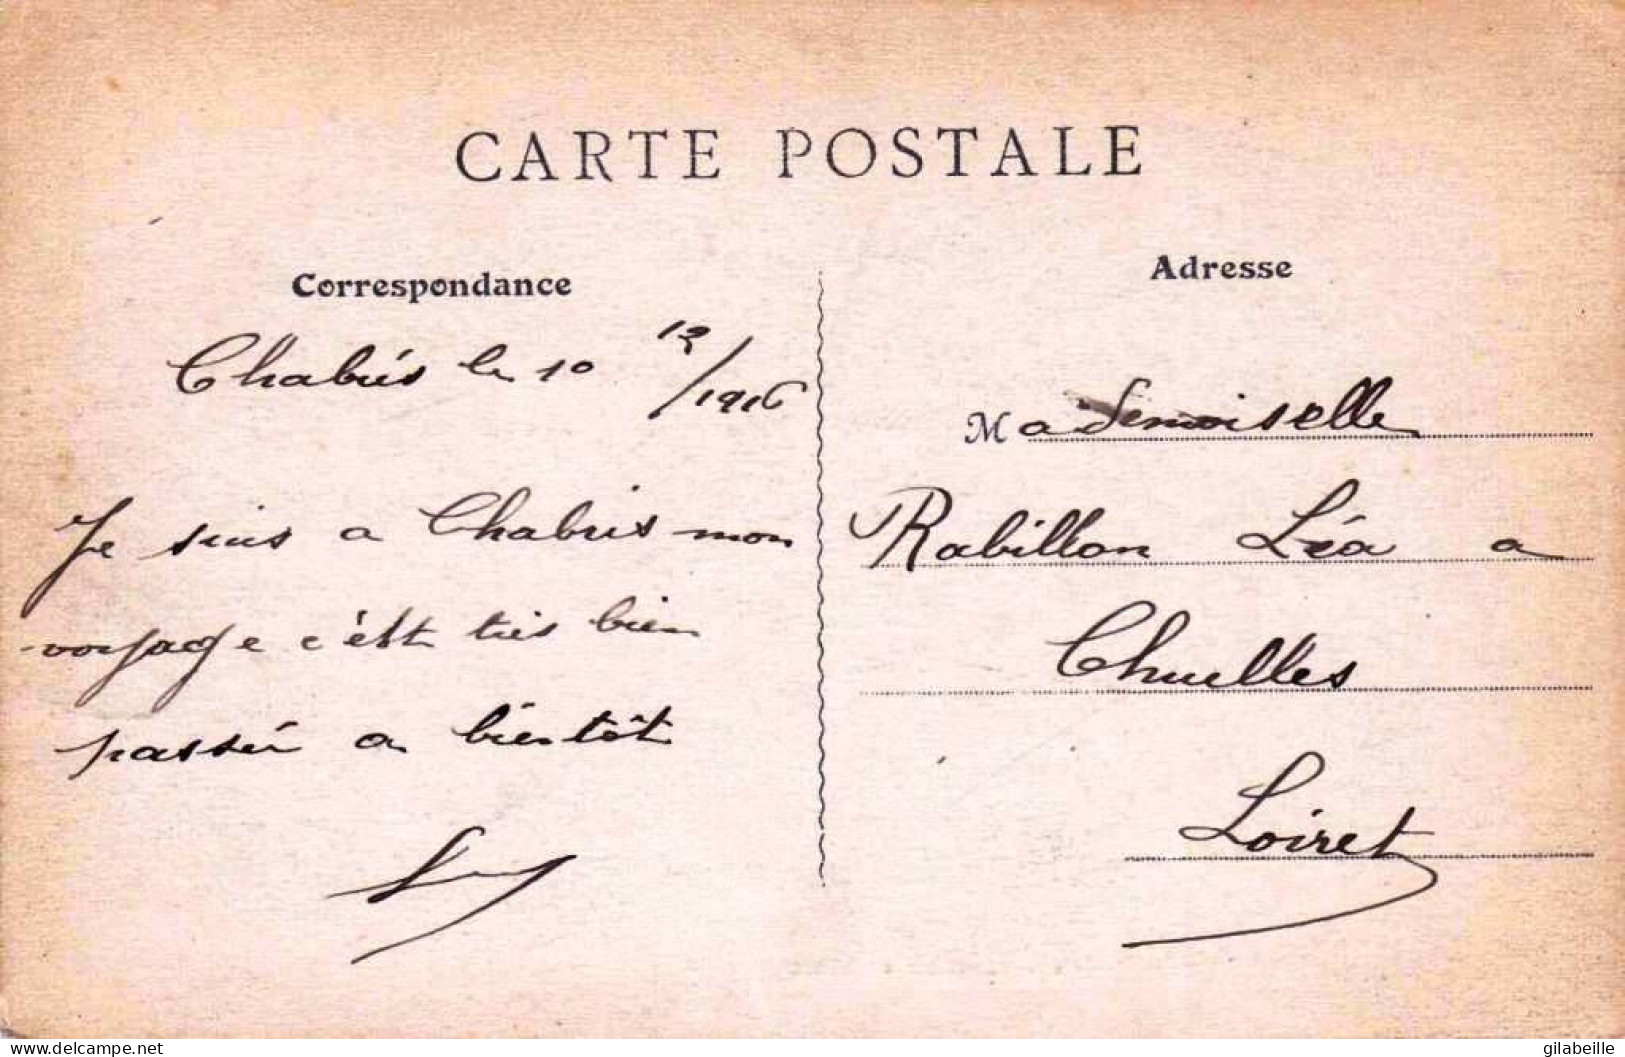 CARTE POSTALE
Correspondance
Chabris le 10 12/1916
Je suis a Chabris mon
voyage c'est très bien
passér a bientôt
Adresse
Mademoiselle
Rabillon Léa a
Chuelles
Loiret
delcampe.net
gilabeille